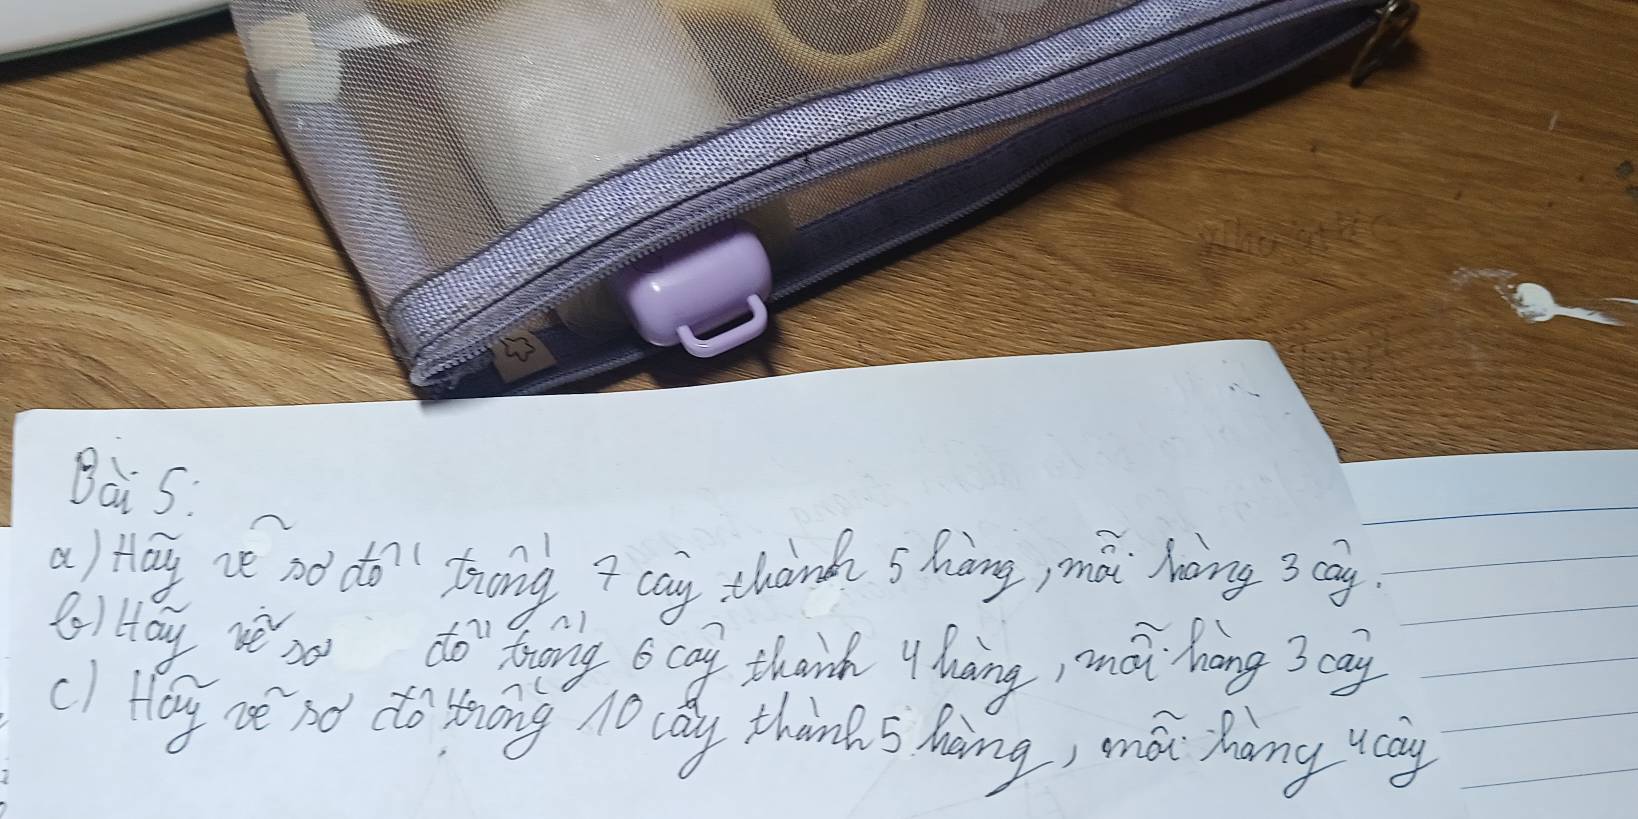 Bài 5:
a) Hãy vẽ sơ đồ trồng 7 cây thành 5 hàng, mỗi hàng 3 cây.
b) Hãy vẽ sơ đồ trồng 6 cây thành 4 hàng, mỗi hàng 3 cây
c) Hãy vẽ sơ đồ trồng 10 cây thành 5 hàng, mỗi hàng 4 cây